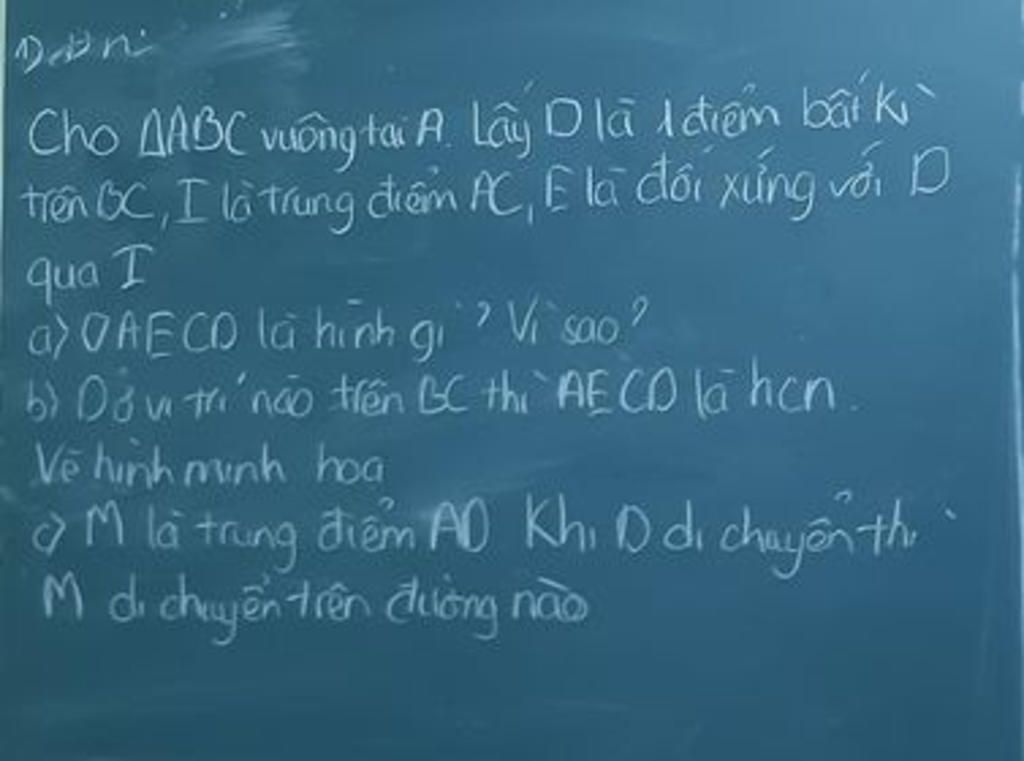 Cho ΔABC vuông tại A. Lấy D là 1 điểm bất kì
trên BC, I là trung điểm AC, E là đối xứng với D
qua I
a) ◊AECD là hình gì? Vì sao?
b) D ở vị trí nào trên BC thì AECD là hcn.
Vẽ hình minh hoạ
c) M là trung điểm AD Khi D di chuyển thì
M di chuyển trên đường nào